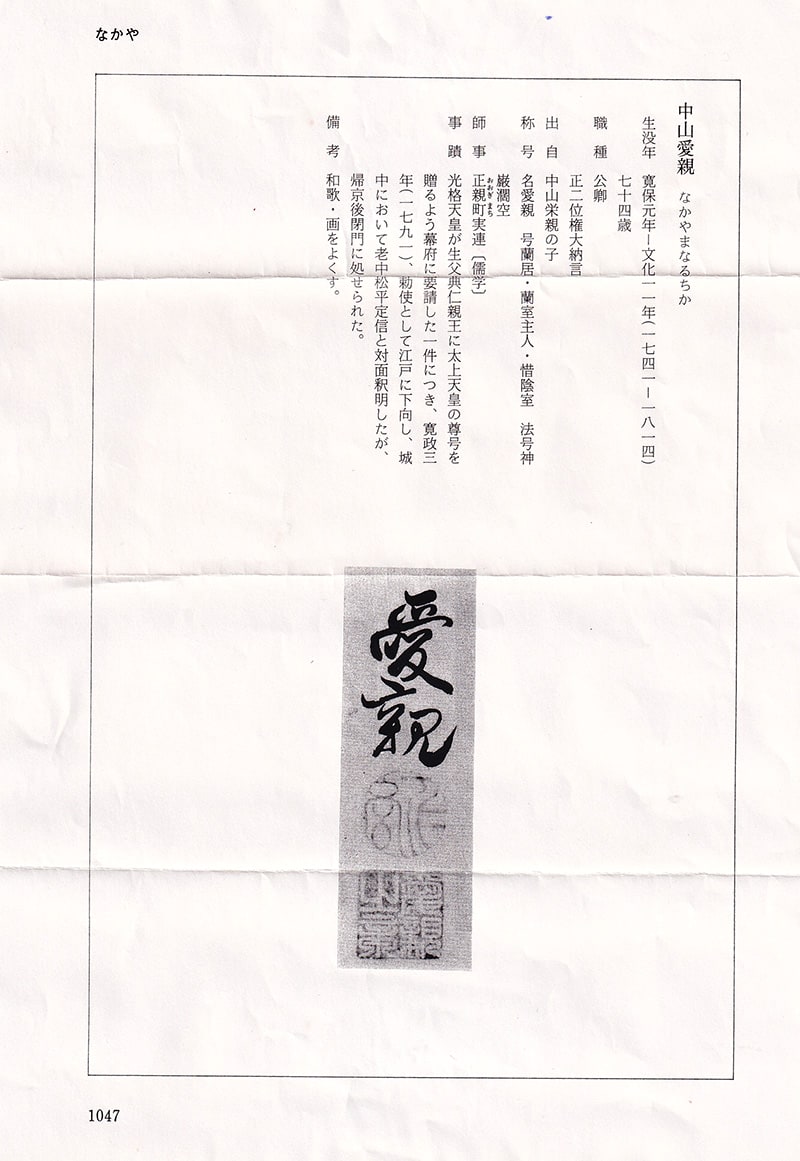 なかや
中山愛親　なかやまなるちか
生没年　寛保元年―文化一一年(一七四一―一八一四)
七十四歳
職種　公卿
正二位権大納言
出自　中山栄親の子
称号　名愛親　号蘭居・蘭室主人・惜陰室　法号神
巌濶空
師事　正親町実連〔儒学〕
おおぎまち
事蹟　光格天皇が生父典仁親王に太上天皇の尊号を
贈るよう幕府に要請した一件につき、寛政三
年(一七九一)、勅使として江戸に下向し、城
中において老中松平定信と対面釈明したが、
帰京後閉門に処せられた。
備考　和歌・画をよくす。
愛親
1047